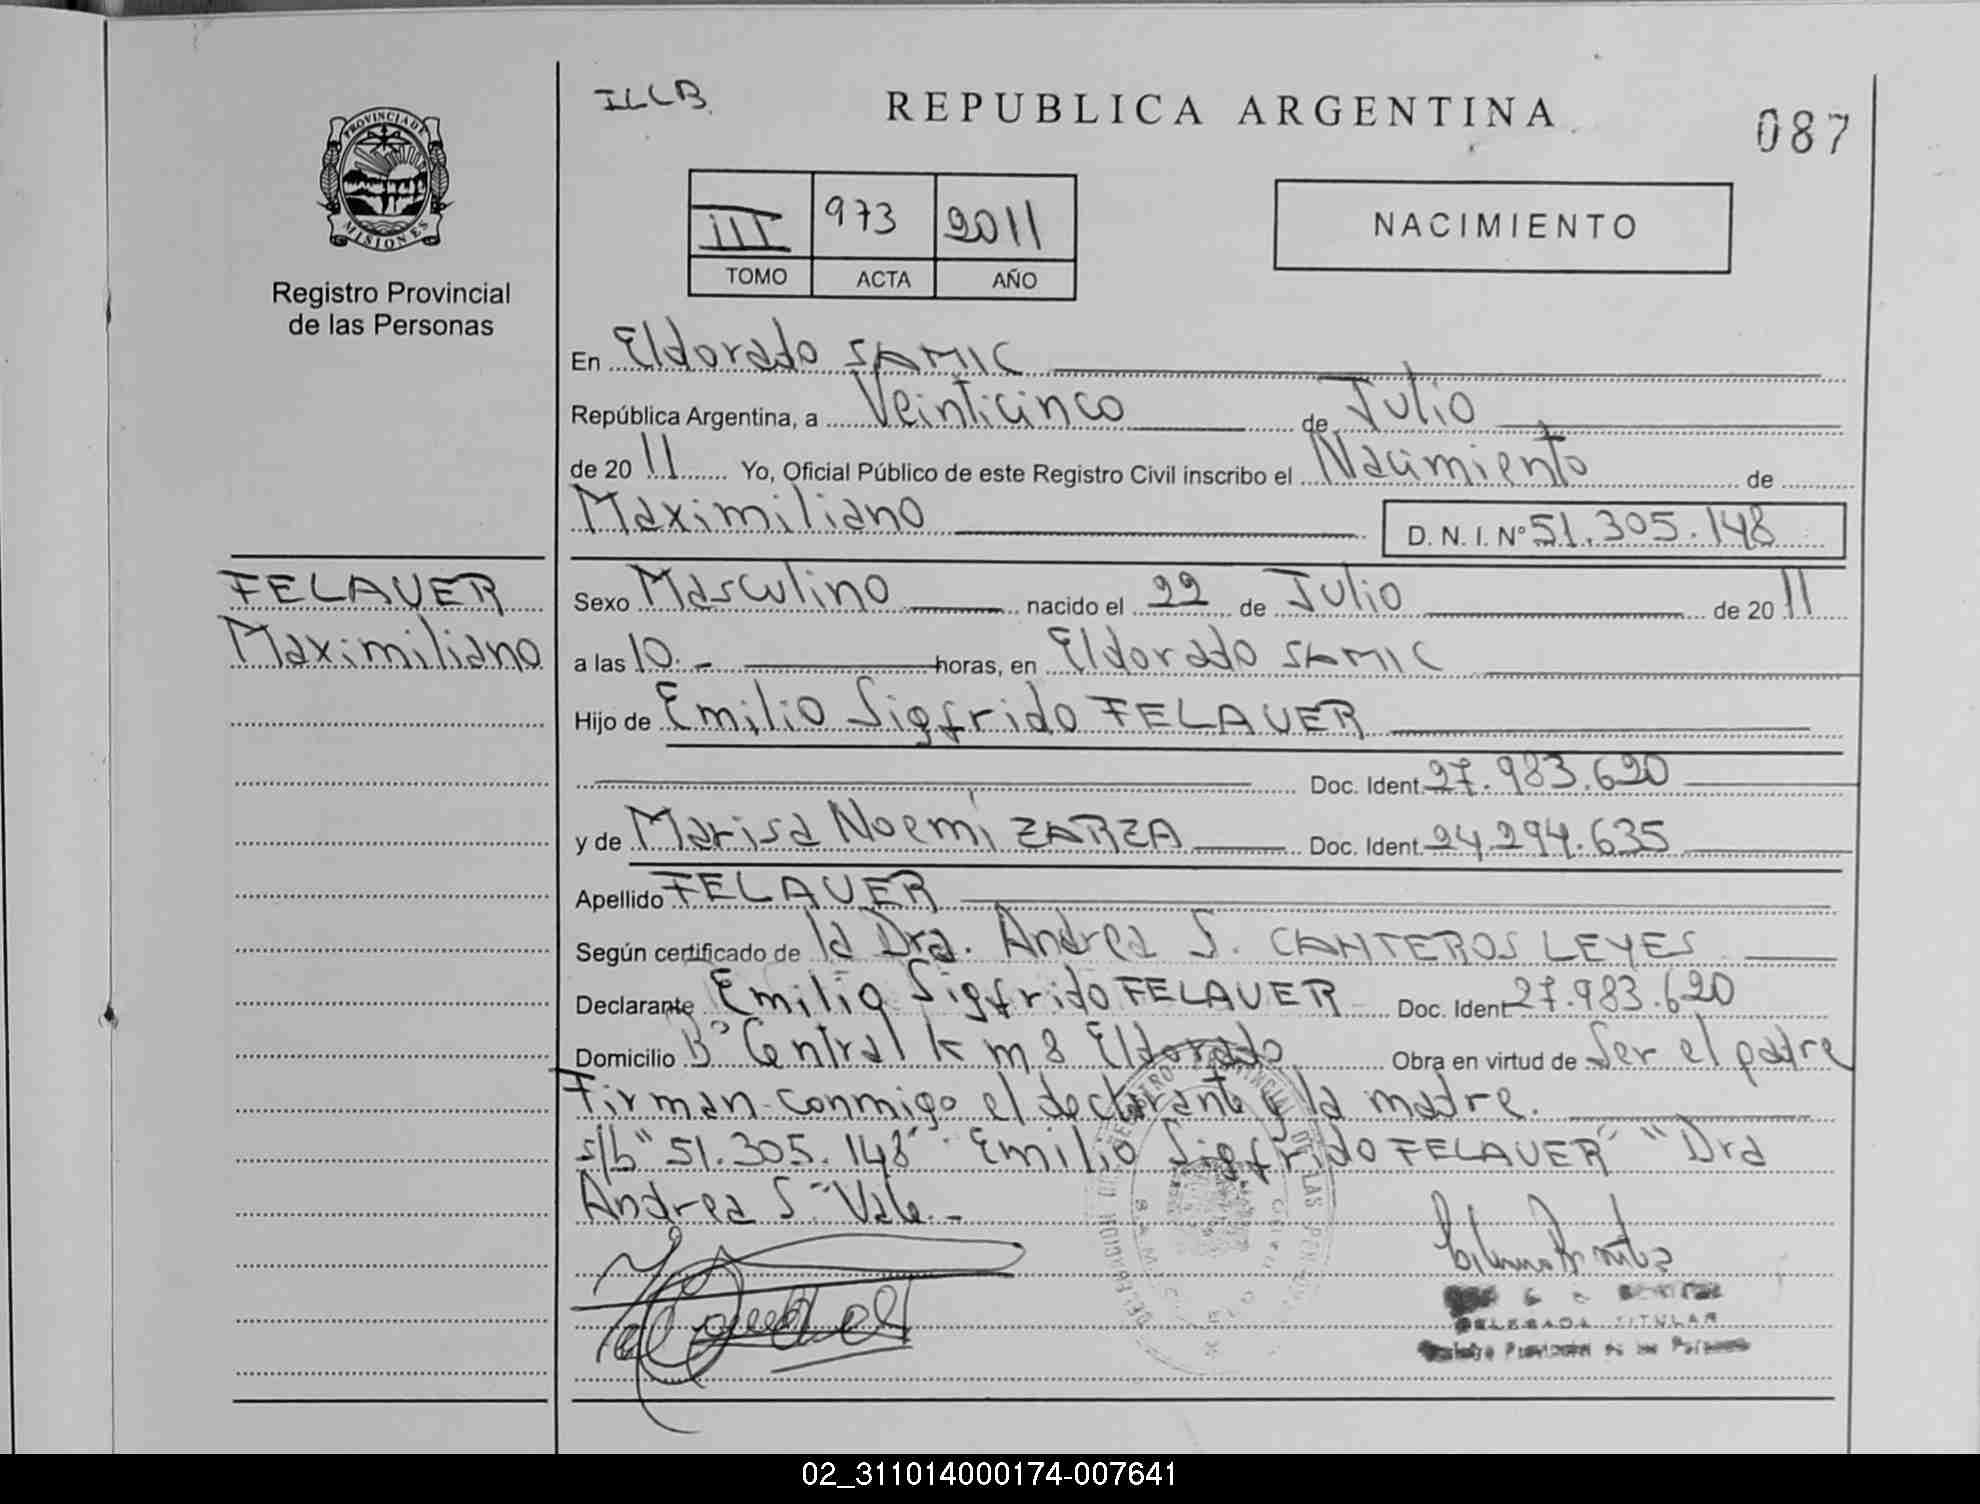 PROVINCIA DE
MISIONES
Registro Provincial
de las Personas
FELAUER
Maximiliano
ILLB
REPUBLICA ARGENTINA
087
III 973 2011
TOMO ACTA AÑO
NACIMIENTO
En Eldorado SAMIC
República Argentina, a Veinticinco de Julio
de 20 11 Yo, Oficial Público de este Registro Civil inscribo el Nacimiento de
Maximiliano D. N. I. Nº 51.305.148
Sexo Masculino nacido el 22 de Julio de 20 11
a las 10.- horas, en Eldorado SAMIC
Hijo de Emilio Sigfrido FELAUER
Doc. Ident. 27.983.620
y de Marisa Noemí ZARZA Doc. Ident. 24.294.635
Apellido FELAUER
Según certificado de la Dra. Andrea S. CANTEROS LEYES
Declarante Emilio Sigfrido FELAUER Doc. Ident. 27.983.620
Domicilio Bº Central Km 8 Eldorado Obra en virtud de Ser el padre
Firman conmigo el declarante y la madre.
s/b "51.305.148" "Emilio Sigfrido FELAUER" "Dra
Andrea S." Vale.-
DELEGADA TITULAR
Registro Provincial de las Personas
02_311014000174-007641